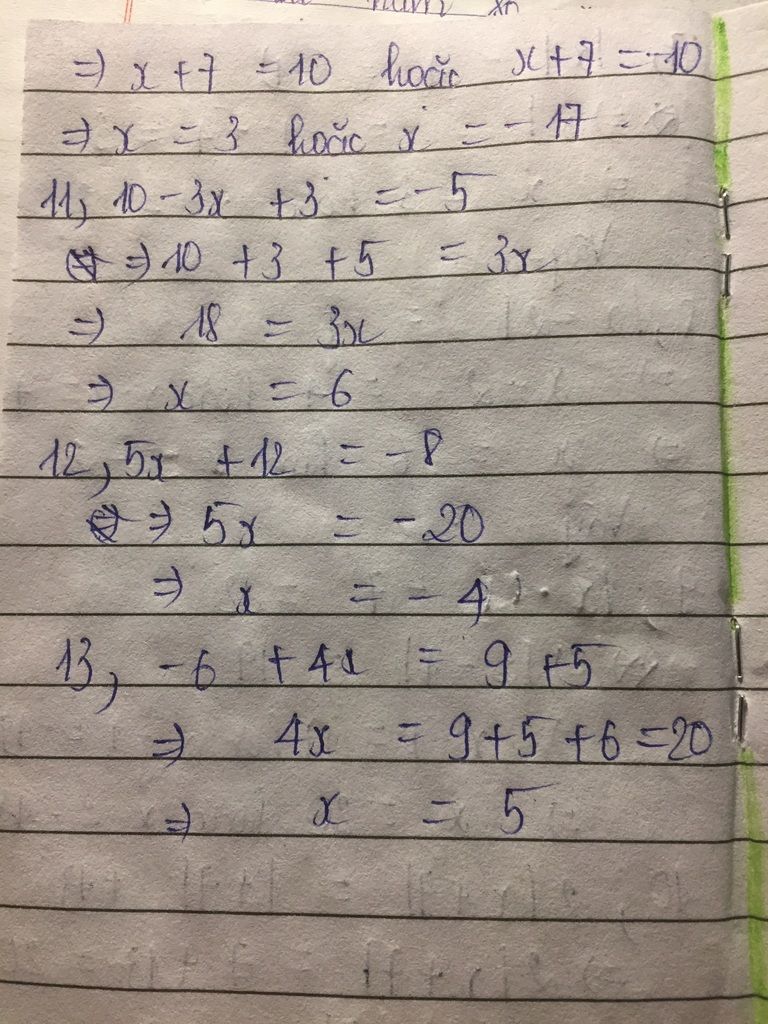 =) x + 7 = 10 hoặc x + 7 = -10
=) x = 3 hoặc x = - 17
11, 10 - 3x + 3 = - 5
=) 10 + 3 + 5 = 3x
=) 18 = 3x
=) x = 6
12, 5x + 12 = - 8
=) 5x = - 20
=) x = - 4
13, - 6 + 4x = 9 + 5
=) 4x = 9 + 5 + 6 = 20
=) x = 5